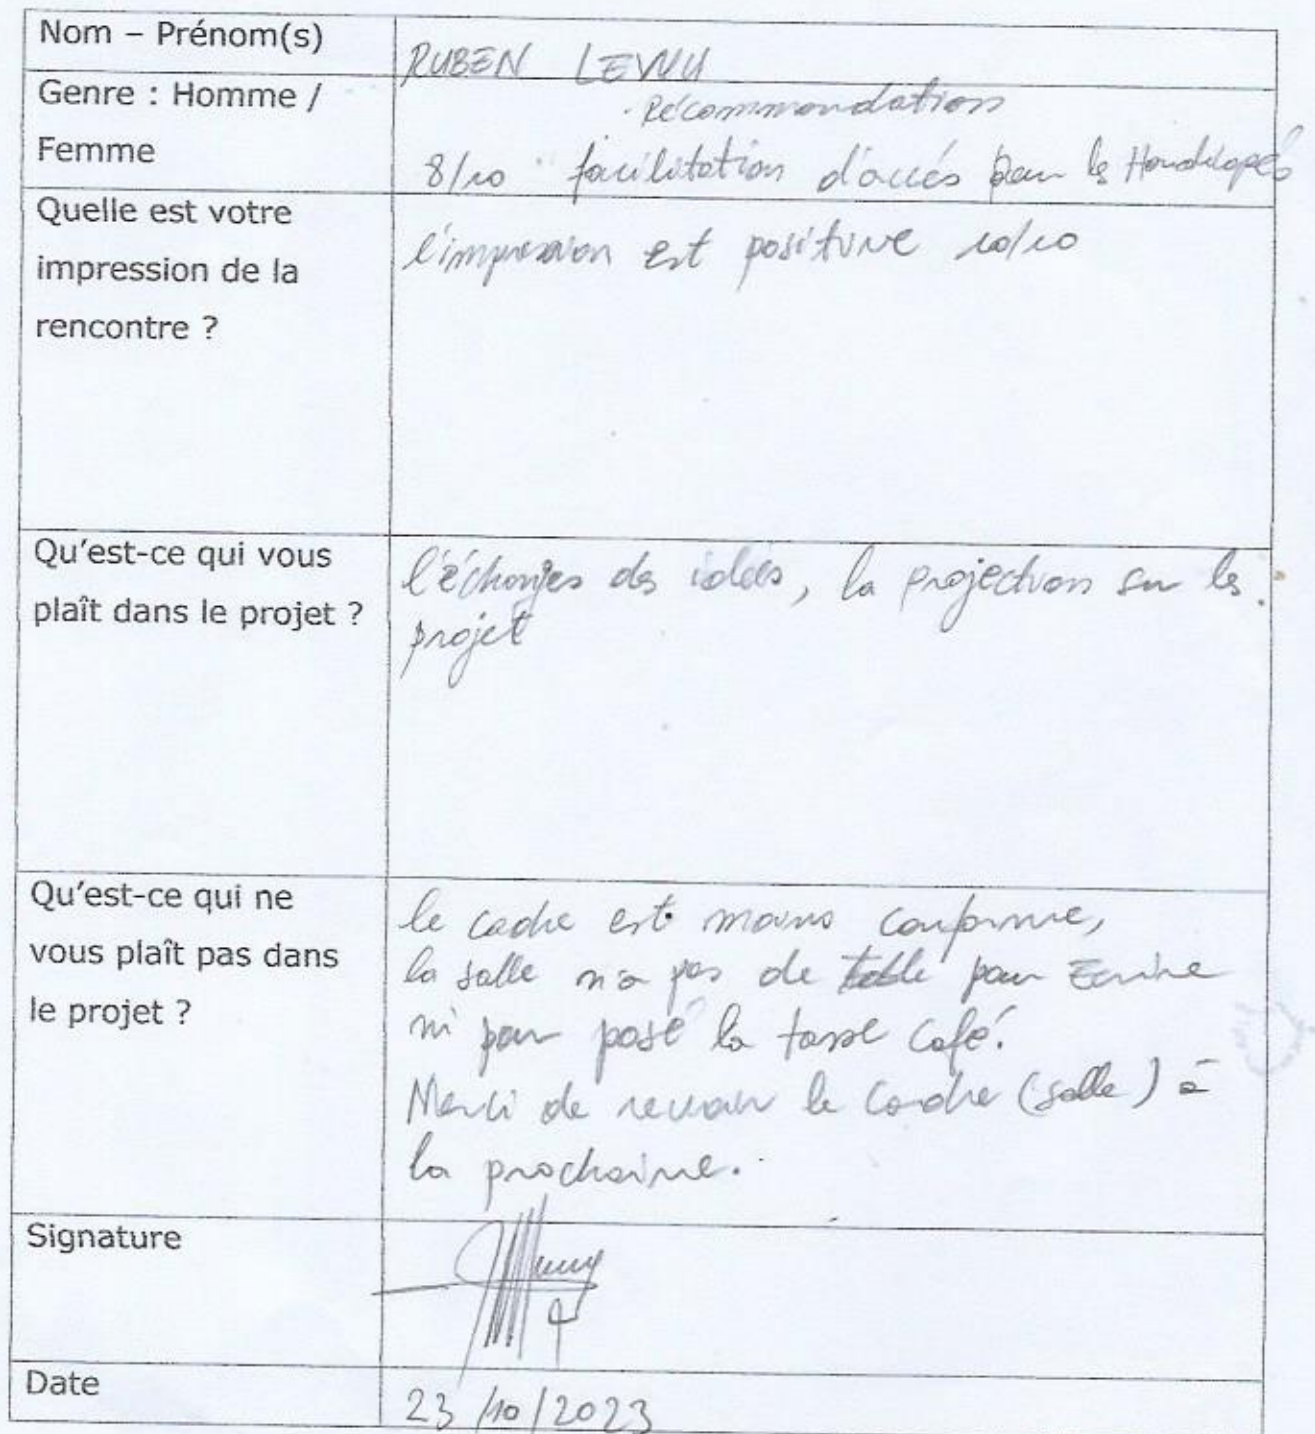 Nom – Prénom(s)
RUBEN LEVVY
Genre : Homme /
Femme
. Récommandation
8/10 facilitation d'accés pour les Handicapés
Quelle est votre
impression de la
rencontre ?
l'impression est positive 10/10
Qu'est-ce qui vous
plaît dans le projet ?
l'échanges des idées, la projection sur les
projet
Qu'est-ce qui ne
vous plaît pas dans
le projet ?
le cadre est moins conforme,
la salle n'a pas de table pour Ecrire
ni pour posé la tasse café.
Merci de revoir le Cadre (salle) à
la prochaine.
Signature
Date
23/10/2023